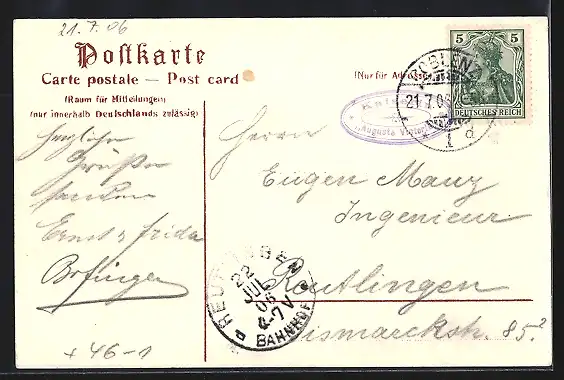 21.7.06
Postkarte
Carte postale — Post card
(Raum für Mitteilungen)
(nur innerhalb Deutschlands zulässig)
(Nur für Adresse)
5 5
DEUTSCHES REICH
COBLENZ
21.7.06
1 d
Kaiserin
"Augusta Victoria"
Herzliche
Grüße
senden
Ernst & Frida
Bofinger
+ 46-1
Herrn
Eugen Mauz
Ingenieur
Reutlingen
Bismarckstr. 85²
REUTLINGEN
22
JUL
06
6-7 V
BAHNHOF